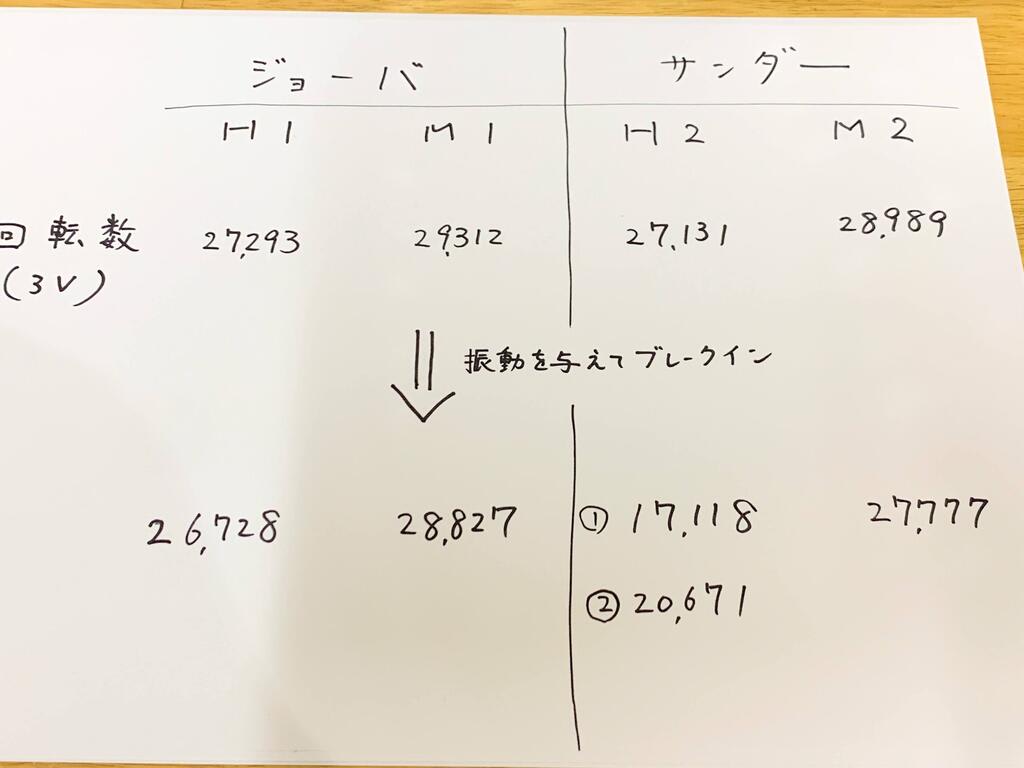 ジョーバ サンダー
H1 M1 H2 M2
回転数 27,293 29,312 27,131 28,989
(3V)
振動を与えてブレークイン
26,728 28,827 ① 17,118 27,777
② 20,671